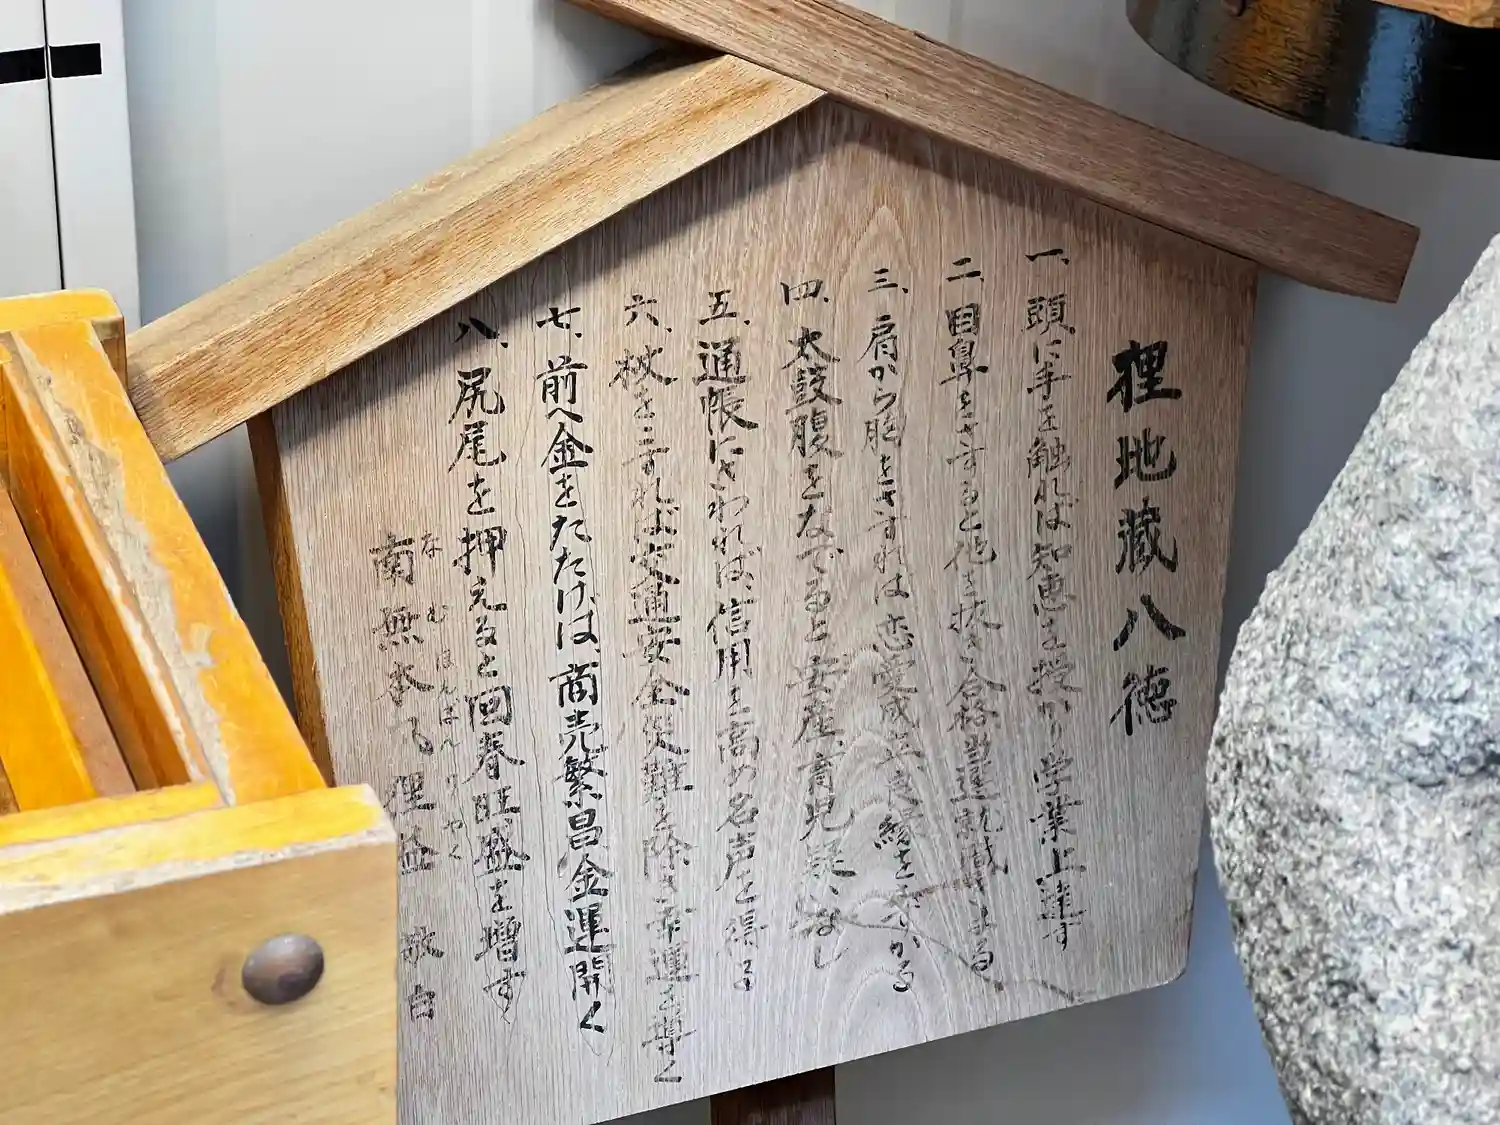 狸地蔵八徳
一、頭に手を触れば知恵を授かり学業上達す
二、目鼻をさすると他を抜き合格当選就職きまる
三、肩から胸をさすれば恋愛成立良縁をさずかる
四、太鼓腹をなでると安産、育児疑いなし
五、通帳にさわれば、信用を高め名声を得る
六、杖をこすれば交通安全災難を除き幸運を導く
七、前へ金をたたけば、商売繁昌金運開く
八、尻尾を押えると回春旺盛を増す
なむほんぽんりやく
南無本凡狸益 敬白